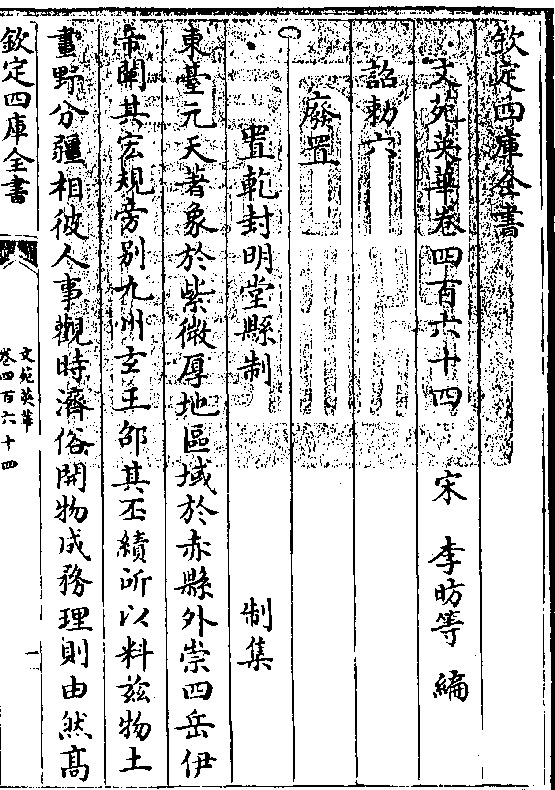 欽定四庫全書
文苑英華卷四百六十四 宋 李昉等 編
詔勅六
廢置
置乾封明堂縣制 制集
東臺元天著象於紫微厚地區域於赤縣外崇四岳伊
帝闡其宏規旁别九州玄王邵其丕績所以料兹物土
畫野分疆相彼人事觀時濟俗開物成務理則由然高
欽定四庫全書
文苑英華
卷四百六十四
一